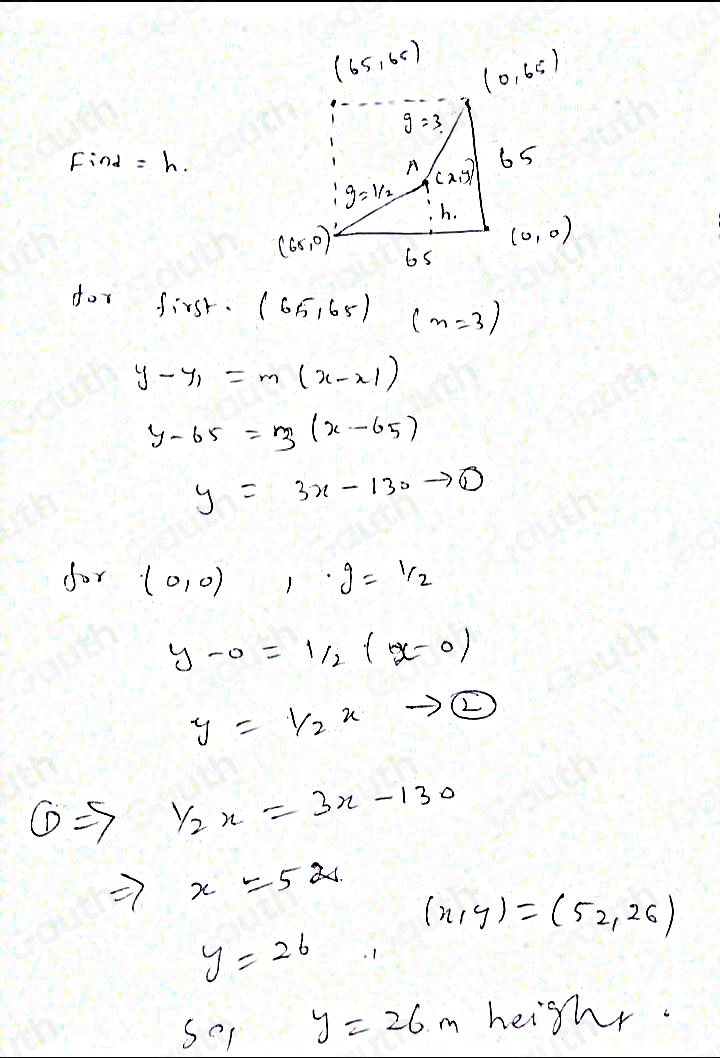 (65,65)
(0,65)
g=3
Find = h.
65
A (x,y)
g=1/2
h.
(65,0)
(0,0)
65
for first. (65,65) (m=3)
y-y1 = m(x-x1)
y-65 = 3(x-65)
y = 3x-130 → ①
for (0,0) , g= 1/2
y-0 = 1/2 (x-0)
y = 1/2 x → ②
① ⇒ 1/2 x = 3x-130
⇒ x = 52
(x,y) = (52,26)
y = 26
so, y = 26 m height.